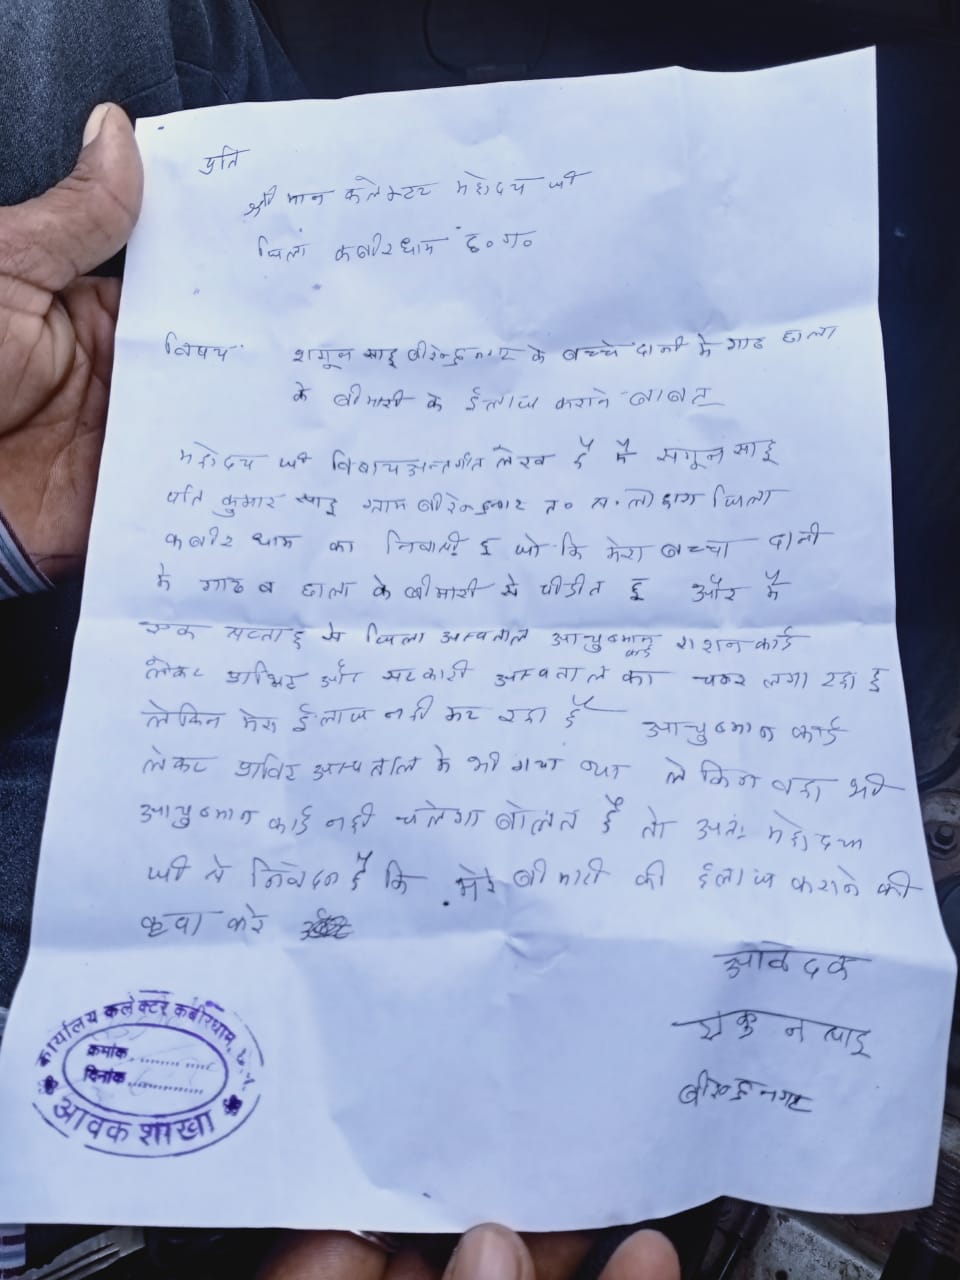 प्रति
श्री मान कलेक्टर महोदय जी
जिला कबीरधाम छ० ग०
विषय: शगून साहू बीरेन्द्रनगर के बच्चे दानी मे गाठ छाला
के बीमारी के ईलाज कराने बाबत
महोदय जी विषयअन्तर्गत लेख है मै सगून साहू
पति कुमार साहू ग्राम बीरेन्द्रनगर त० स. लोहारा जिला
कबीर धाम का निवासी हु जो कि मेरा बच्चा दानी
मे गाठ व छाला के बीमारी से पीडीत हु और मै
एक सप्ताह से जिला अस्पताल आयुष्मान कार्ड राशन कार्ड
लेकर प्राभिट और सरकारी अस्पताल का चक्कर लगा रहा हु
लेकिन मेरा ईलाज नही कर रहा है आयुष्मान कार्ड
लेकर प्राविट अस्पताल मे भी गया था लेकिन वहा भी
आयुष्मान कार्ड नही चलेगा बोलत है तो अतः महोदय
जी से निवेदन है कि मेरे बीमारी की ईलाज कराने की
कृपा करे
आवेदक
शकुन साहू
बीरेन्द्रनगर
कार्यालय कलेक्टर कबीरधाम, छ.ग.
क्रमांक
दिनांक
आवक शाखा